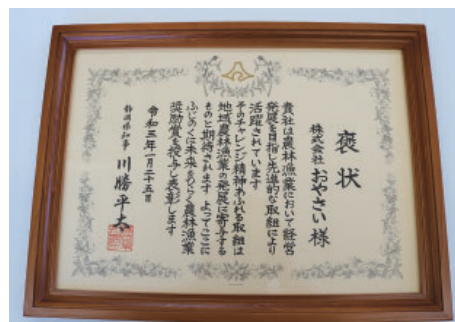 褒状
株式会社 おやさい 様
貴社は農林漁業において経営
発展を目指し先進的な取組により
活躍されています
そのチャレンジ精神あふれる取組は
地域農林漁業の発展に寄与する
ものと期待されます よってここに
ふじのくに未来をひらく農林漁業
奨励賞を授与し表彰します
令和三年一月二十五日
静岡県知事 川勝平太